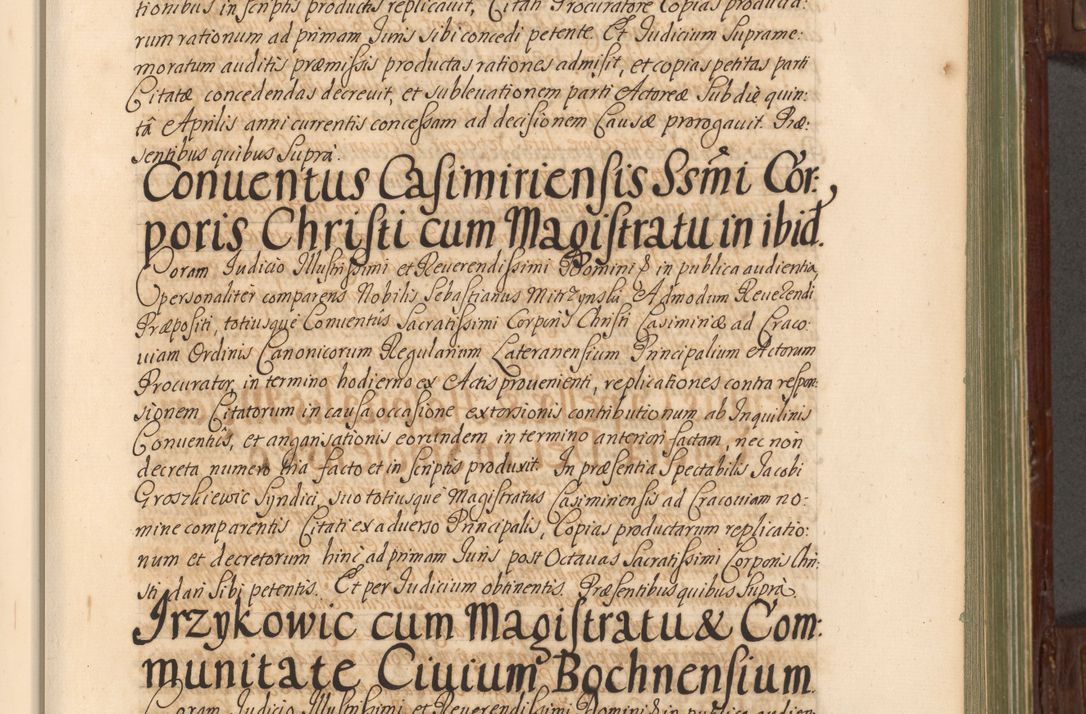 tionibus in scriptis productis replicavit, Citati Procuratore Copias producta:
rum rationum ad primam Juris sibi concedi petente. Et Judicium Suprame:
moratum auditis præmissis productas rationes admisit, et copias petitas parti
Citatæ concedendas decrevit, et sublevationem parti Actoreæ Sub diè quin:
tâ Aprilis anni currentis concessam ad decisionem Causæ prorogavit. Præ:
sentibus quibus Suprà.
Conventus Casimiriensis Ssm̃i Cor:
poris Christi cum Magistratu in ibid.
Coram Judicio Illustrissimi et Reverendissimi Domini & in publica audientia
personalitèr comparens Nobilis Sebastianus Mitrzynski Admodum Reverendi
Præpositi, totiusque Conventûs Sacratissimi Corporis Christi Casimiriæ ad Craco:
viam Ordinis Canonicorum Regularium Lateranensium Principalium Actorum
Procurator, in termino hodierno ex Actis provenienti, replicationes contra respon:
sionem Citatorum in causa occasione extorsionis contributionum ab Inquilinis
Conventûs, et angarisationis eorundem in termino anteriori factam, nec non
decreta numero tria facto et in scriptis produxit. In præsentia Spectabilis Jacobi
Groszkiewic Syndici, suo totiusque Magistratus Casimiriensis ad Cracoviam no:
mine comparentis Citati ex adverso Principalis, Copias productarum replicatio:
num et decretorum hinc ad primam Juris post Octavas Sacratissimi Corporis Chri:
sti dari sibi petentis. Et per Judicium obtinentis. Præsentibus quibus Suprà.
Jrzykowic cum Magistratu & Com:
munitate Civium Bochnensium.
Coram Judicio Illustrissimi et Reverendissimi Domini & in publica audien